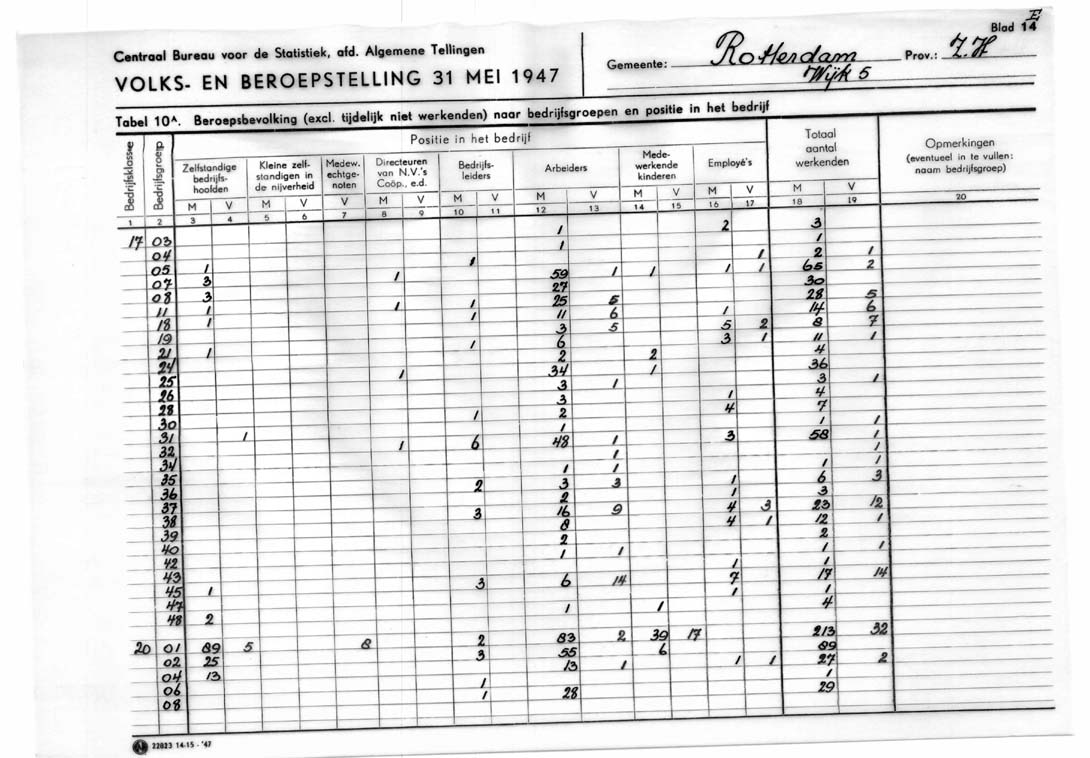 Blad 14 E
Centraal Bureau voor de Statistiek, afd. Algemene Tellingen
VOLKS- EN BEROEPSTELLING 31 MEI 1947
Gemeente: Rotterdam Prov.: Z.H
Wijk 5
Tabel 10A. Beroepsbevolking (excl. tijdelijk niet werkenden) naar bedrijfsgroepen en positie in het bedrijf
Bedrijfsklasse Bedrijfsgroep Positie in het bedrijf Totaal aantal werkenden Opmerkingen (eventueel in te vullen: naam bedrijfsgroep)
Zelfstandige bedrijfs-hoofden Kleine zelf-standigen in de nijverheid Medew. echtge-noten Directeuren van N.V.'s Coöp., e.d. Bedrijfs-leiders Arbeiders Mede-werkende kinderen Employé's
M V M V V M V M V M V M V M V M V
1 2 3 4 5 6 7 8 9 10 11 12 13 14 15 16 17 18 19 20
17 03 1 2 3
04 1 1
05 1 1 1 2 1
07 3 1 59 1 1 1 1 65 2
08 3 27 30
11 1 1 1 25 5 28 5
18 1 1 11 6 1 14 6
19 3 5 5 2 8 7
21 1 1 6 3 1 11 1
24 2 2 4
25 1 34 1 36
26 3 1 3 1
28 3 1 4
30 1 2 4 7
31 1 1 1 1
32 1 6 48 1 3 58 1
34 1 1
35 1 1 1 1
36 2 3 3 1 6 3
37 2 1 3
38 3 16 9 4 3 23 12
39 8 4 1 12 1
40 2 2
42 1 1 1 1
43 1 1
45 1 3 6 14 7 17 14
47 1 1
48 2 1 1 4
20 01 89 5 8 2 83 2 39 17 213 32
02 25 3 55 6 89
04 13 13 1 1 1 27 2
06 1 1
08 1 28 29
22823 14-15 - '47